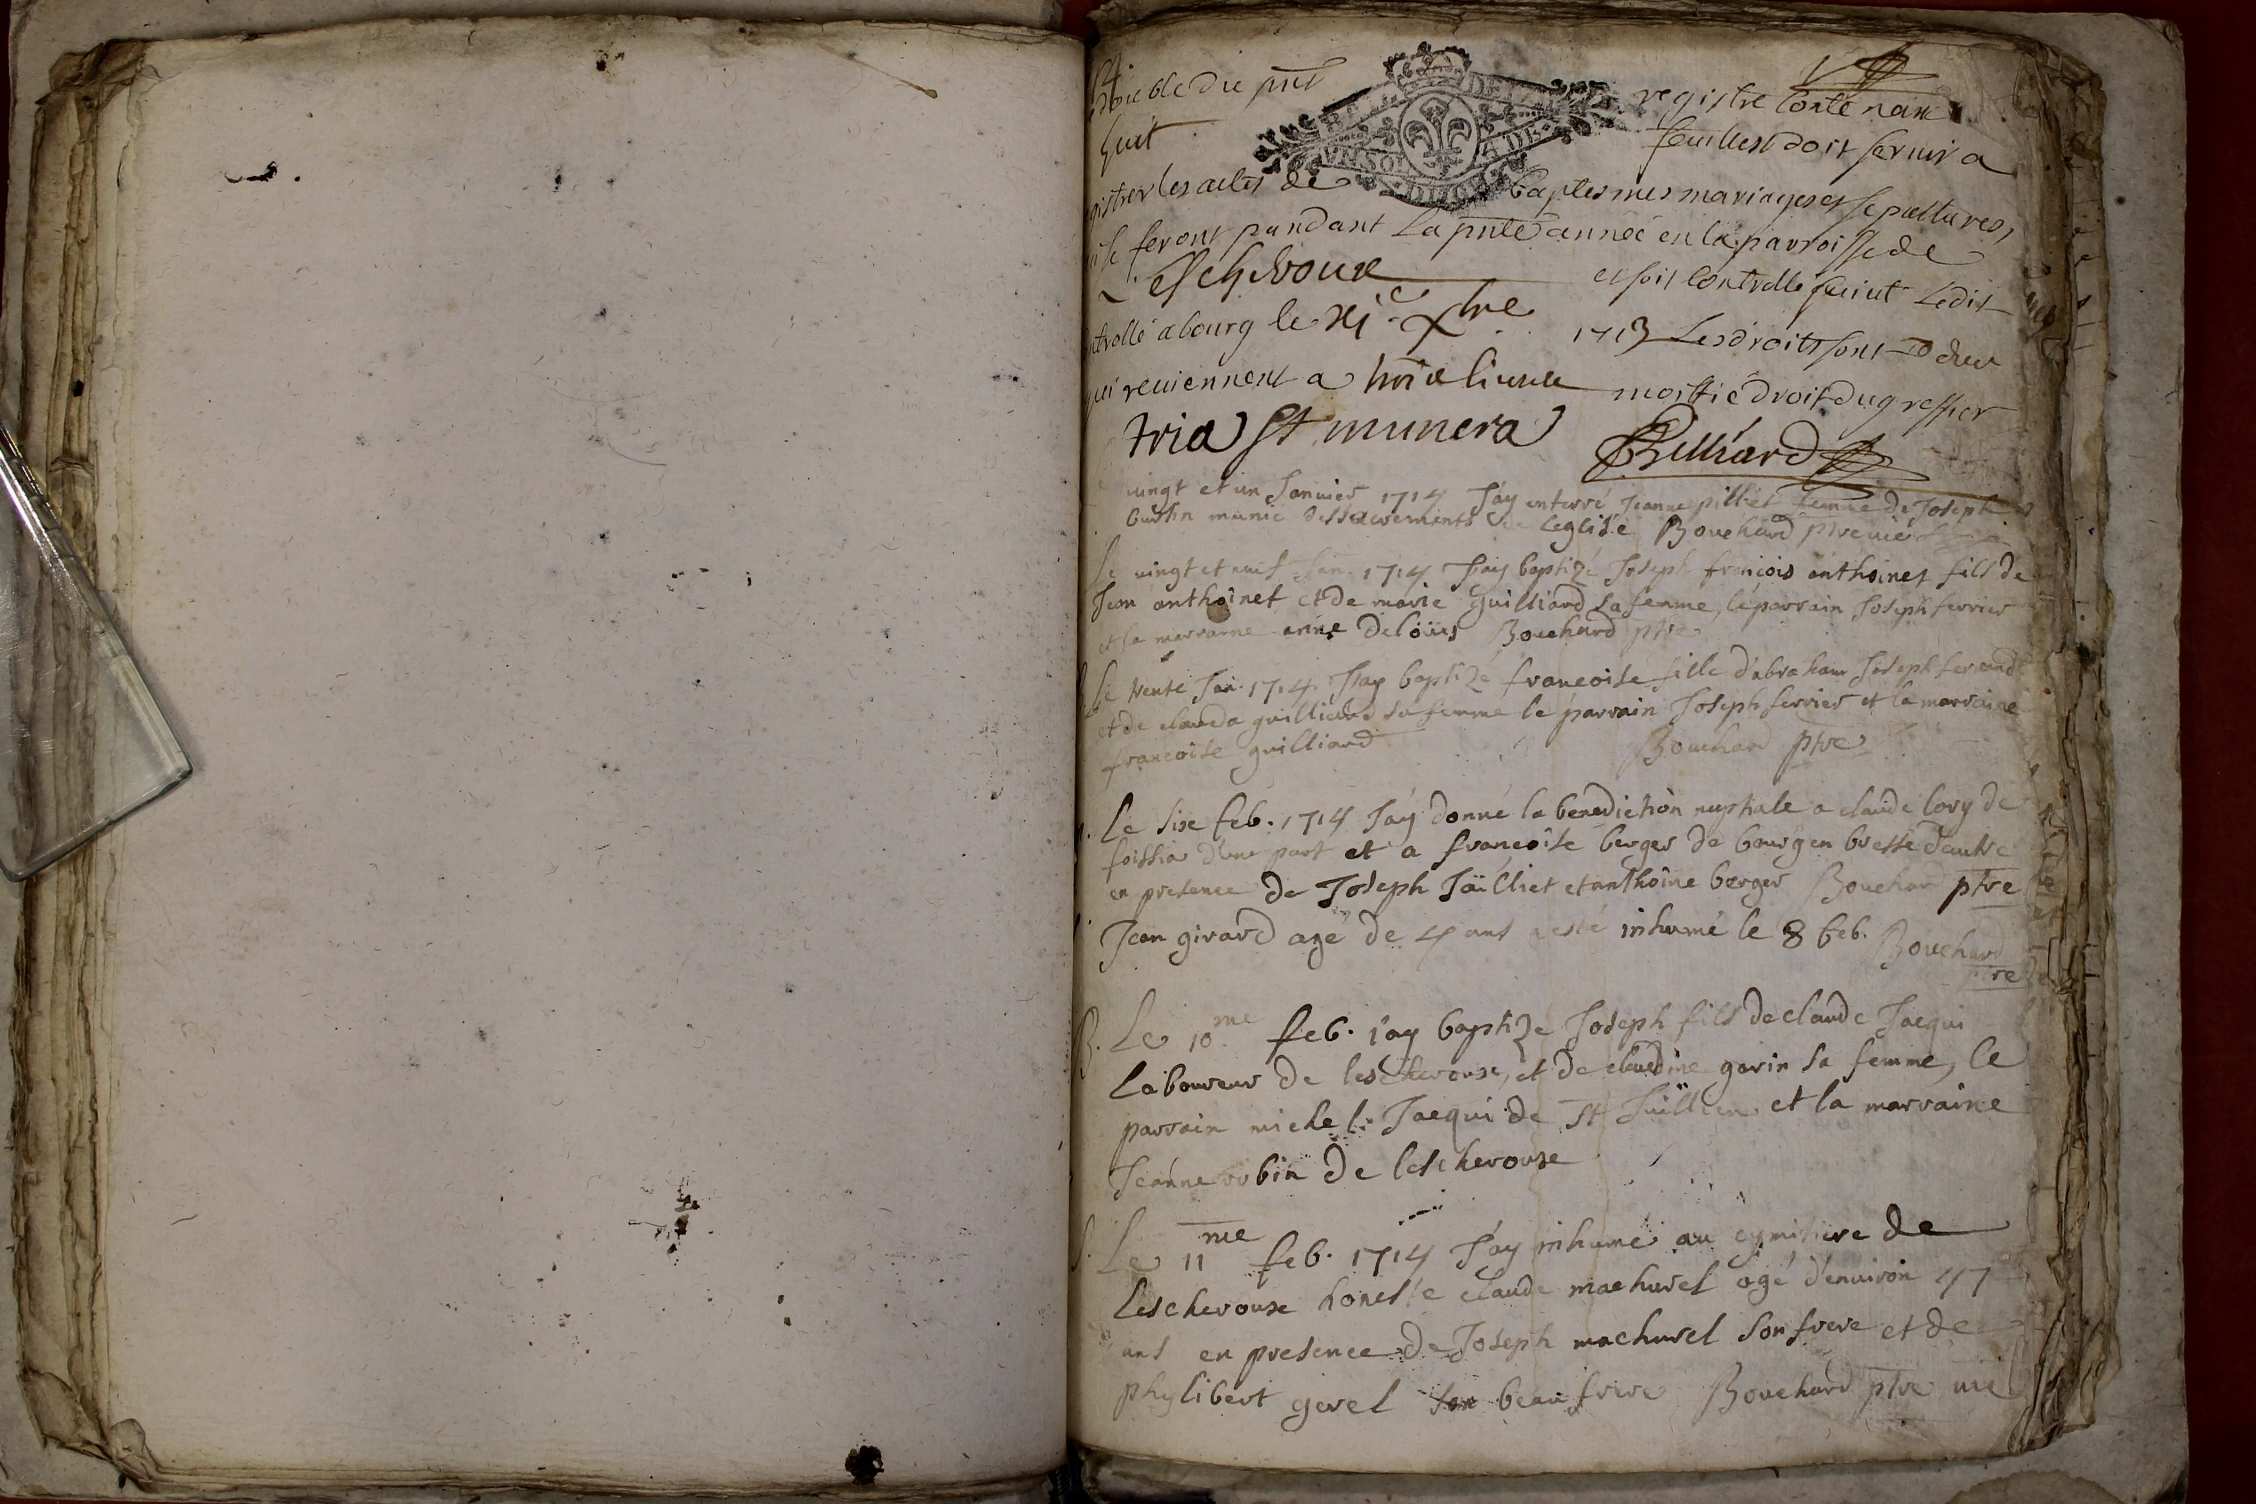 Double du pnt registre contenant
huit feuillest doit servir a
gistrer les actes de baptesmes mariages et sepultures
se feront pandant La pnte année en la parroisse de
Lescheroux et soit controllé suiut Ledit
ntrollé a bourg le xj.e xbre 1713 Les droits sont deus
qui reuiennent a trois liures moittié droit du greffier
tria st munera Billiard
vingt et un Januier 1714 J'ay enterré Jeanne pilliet femme de Joseph
munie des sacrements de leglise Bouchard ptre vic
Le vingt et neuf Jan. 1714 J'ay baptizé Joseph françois anthoinet fils de
Jean anthoinet et de marie guilliard sa femme, le parrain Joseph ferrier
et la marraine anne Bouchard ptre
Le trente Jan. 1714. J'ay baptizé francoise fille d'abraham Joseph
et de clauda guilliard sa femme le parrain Joseph ferrier et la marraine
francoise guilliard Bouchard ptre
Le six feb. 1714 J'ay donné la benediction nuptiale a claude lovy de
foissia d'une part et a francoise berger de bourg en bresse d'autre
en presence de Joseph Jailliet et anthoine berger Bouchard ptre
Jean girard agé de 4 ans a esté inhumé le 8 feb. Bouchard
ptre
B. Le 10me feb. j'ay baptizé Joseph fils de claude Jacqui
laboureur de lescheroux, et de claudine gorin sa femme, le
parrain michel Jacqui de St Juillien et la marraine
Jeanne robin de lescheroux
S. Le 11me feb. 1714 J'ay inhumé au cymitiere de
Lescheroux honeste claude machurel agé d'environ 47
ans en presence de Joseph machurel son frere et de
phylibert gerel son beaufrere Bouchard ptre vic